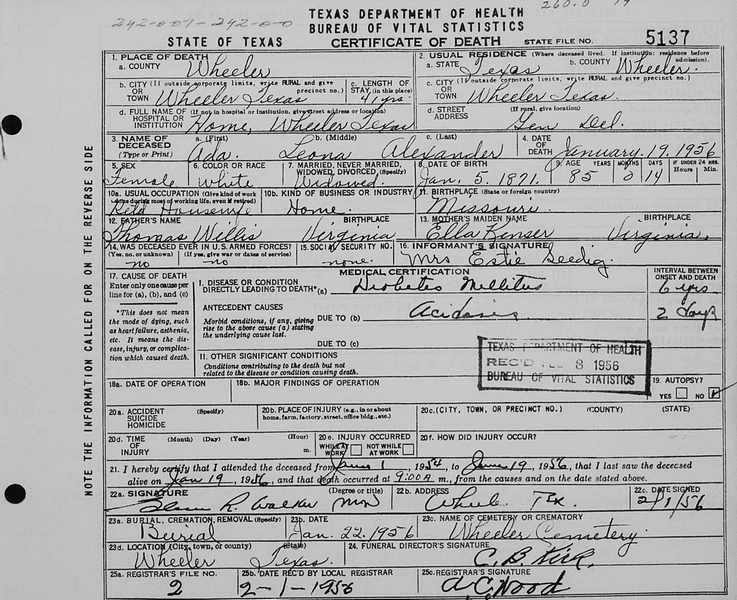 TEXAS DEPARTMENT OF HEALTH
BUREAU OF VITAL STATISTICS
STATE OF TEXAS CERTIFICATE OF DEATH STATE FILE NO. 5137
1. PLACE OF DEATH
a. COUNTY Wheeler
2. USUAL RESIDENCE (Where deceased lived. If institution: residence before admission).
a. STATE Texas b. COUNTY Wheeler
b. CITY (If outside corporate limits, write RURAL and give precinct no.) OR TOWN Wheeler Texas
c. LENGTH OF STAY (in this place) 41 yrs.
c. CITY (If outside corporate limits, write RURAL and give precinct no.) OR TOWN Wheeler Texas.
d. FULL NAME OF (If not in hospital or institution, give street address or location) HOSPITAL OR INSTITUTION Home, Wheeler Texas
d. STREET ADDRESS (If rural, give location) Gen Del.
3. NAME OF DECEASED (Type or Print)
a. (First) Ada b. (Middle) Leona c. (Last) Alexander
4. DATE OF DEATH January 19, 1956
5. SEX Female
6. COLOR OR RACE White
7. MARRIED, NEVER MARRIED, WIDOWED, DIVORCED (Specify) Widowed.
8. DATE OF BIRTH Jan. 5. 1871.
9. AGE YEARS 85 MONTHS 0 DAYS 14 IF UNDER 24 HRS. Hours Min.
10a. USUAL OCCUPATION (Give kind of work done during most of working life, even if retired) Retd Housewf.
10b. KIND OF BUSINESS OR INDUSTRY Home.
11. BIRTHPLACE (State or foreign country) Missouri
12. FATHER'S NAME Thomas Willis BIRTHPLACE Virginia
13. MOTHER'S MAIDEN NAME Ella BIRTHPLACE Virginia.
14. WAS DECEASED EVER IN U.S. ARMED FORCES? (Yes, no, or unknown) no (If yes, give war or dates of service) no
15. SOCIAL SECURITY NO. none.
16. INFORMANT'S SIGNATURE Mrs Estie
17. CAUSE OF DEATH
Enter only one cause per line for (a), (b), and (c)
*This does not mean the mode of dying, such as heart failure, asthenia, etc. It means the disease, injury, or complication which caused death.
MEDICAL CERTIFICATION
INTERVAL BETWEEN ONSET AND DEATH
I. DISEASE OR CONDITION DIRECTLY LEADING TO DEATH* (a) Diabetes Mellitus 6 yrs
ANTECEDENT CAUSES
Morbid conditions, if any, giving rise to the above cause (a) stating the underlying cause last.
DUE TO (b) Acidosis 2 days
DUE TO (c)
II. OTHER SIGNIFICANT CONDITIONS
Conditions contributing to the death but not related to the disease or condition causing death.
TEXAS DEPARTMENT OF HEALTH
REC'D 8 1956
BUREAU OF VITAL STATISTICS
18a. DATE OF OPERATION
18b. MAJOR FINDINGS OF OPERATION
19. AUTOPSY? YES NO
20a. ACCIDENT SUICIDE HOMICIDE (Specify)
20b. PLACE OF INJURY (e.g., in or about home, farm, factory, street, office bldg., etc.)
20c. (CITY, TOWN, OR PRECINCT NO.) (COUNTY) (STATE)
20d. TIME OF INJURY (Month) (Day) (Year) (Hour) m.
20e. INJURY OCCURRED WHILE AT WORK NOT WHILE AT WORK
20f. HOW DID INJURY OCCUR?
21. I hereby certify that I attended the deceased from 1, 1954, to 19, 1956, that I last saw the deceased
alive on Jan 19, 1956, and that death occurred at 9:00 A m., from the causes and on the date stated above.
22a. SIGNATURE R. Walker (Degree or title) MD
22b. ADDRESS Tex
22c. DATE SIGNED 2/1/56
23a. BURIAL, CREMATION, REMOVAL (Specify) Burial
23b. DATE Jan. 22. 1956
23c. NAME OF CEMETERY OR CREMATORY Wheeler Cemetery
23d. LOCATION (City, town, or county) (State) Wheeler Texas.
24. FUNERAL DIRECTOR'S SIGNATURE C. B. Kirk.
25a. REGISTRAR'S FILE NO. 2
25b. DATE REC'D BY LOCAL REGISTRAR 2-1-1956
25c. REGISTRAR'S SIGNATURE A.C. Wood
NOTE THE INFORMATION CALLED FOR ON THE REVERSE SIDE